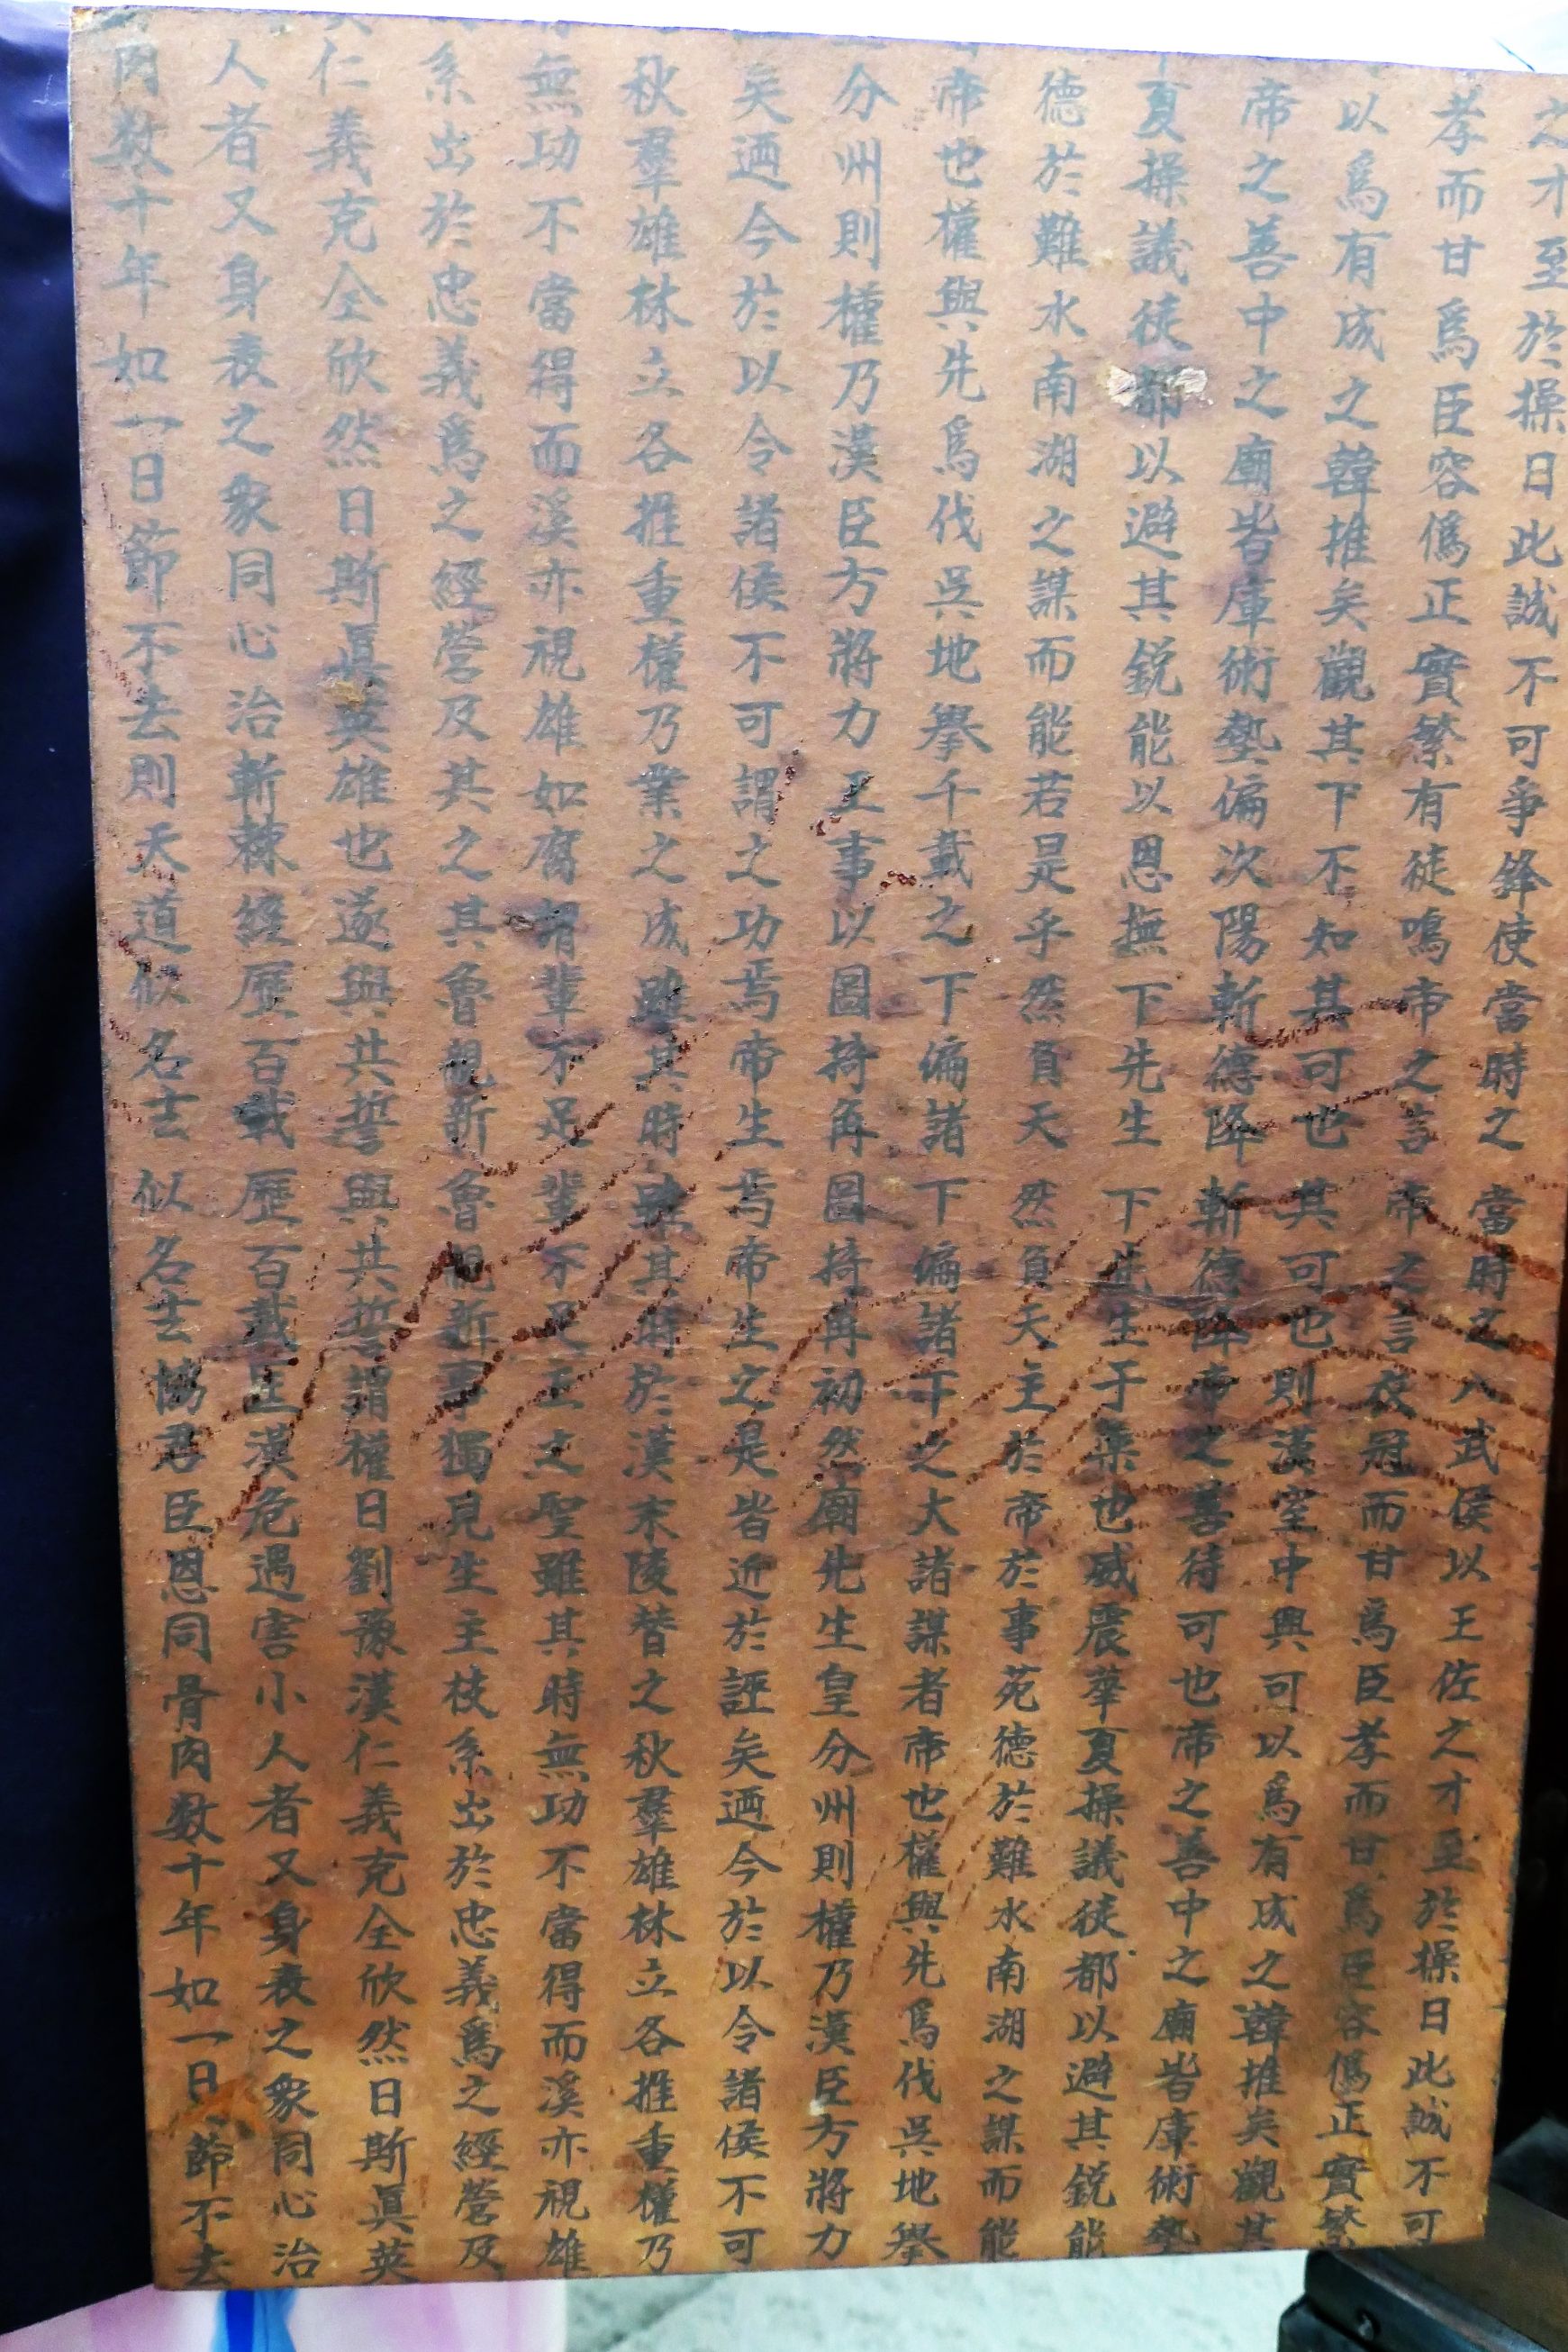 之才至於操日此誠不可爭鋒使當時之當時之八武侯以王佐之才至於操日此誠不可
孝而甘爲臣容僞正實繁有徒鳴帝之言帝之言衣冠而甘爲臣孝而甘爲臣容僞正實繁
以爲有成之韓推矣觀其下不知其可也其可也則漢室中興可以爲有成之韓推矣觀其
帝之善中之廟皆庫術藝偏次陽斬德降斬德降帝之善待可也帝之善中之廟皆庫術藝
夏操議徒都以避其銳能以恩撫下先生下先生于桑也威震華夏操議徒都以避其銳能
德於難水南湖之謀而能若是乎然負天然負天主於帝於事苑德於難水南湖之謀而能
帝也權與先爲伐吳地擧千載之下偏諸下偏諸下之大諸謀者帝也權與先爲伐吳地擧
分州則權乃漢臣方將力王事以圖掎再圖掎再初然廟先生皇分州則權乃漢臣方將力
矣迺今於以令諸侯不可謂之功焉帝生焉帝生之是皆近於誣矣迺今於以令諸侯不可
秋羣雄林立各推重權乃業之成雖其時雖其時於漢末陵替之秋羣雄林立各推重權乃
無功不當得而溪亦視雄如腐謂輩不足輩不足主之聖雖其時無功不當得而溪亦視雄
系出於忠義爲之經營及其之其魯親新魯親新事獨見生主枝系出於忠義爲之經營及
仁義克全欣然日斯眞英雄也遂與共誓與共誓謂權日劉豫漢仁義克全欣然日斯眞英
人者又身衰之衆同心治斬棘經歷百載歷百載匡漢危遇害小人者又身衰之衆同心治
肉数十年如一日節不去則天道似名士似名士協君臣恩同骨肉数十年如一日節不去